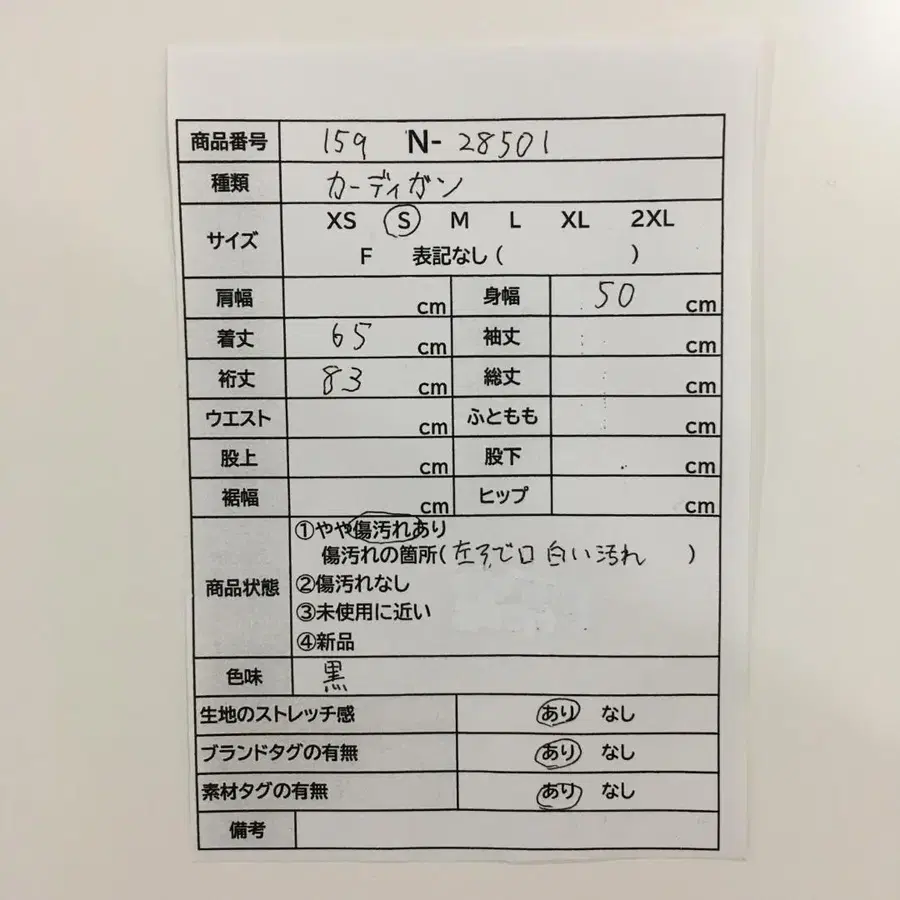 商品番号 159 N- 28501
種類 カーディガン
サイズ XS S M L XL 2XL
F 表記なし ( )
肩幅 cm 身幅 50 cm
着丈 65 cm 袖丈 cm
裄丈 83 cm 総丈 cm
ウエスト cm ふともも cm
股上 cm 股下 cm
裾幅 cm ヒップ cm
商品状態 ①やや傷汚れあり
傷汚れの箇所(左そで口 白い汚れ )
②傷汚れなし
③未使用に近い
④新品
色味 黒
生地のストレッチ感 あり なし
ブランドタグの有無 あり なし
素材タグの有無 あり なし
備考